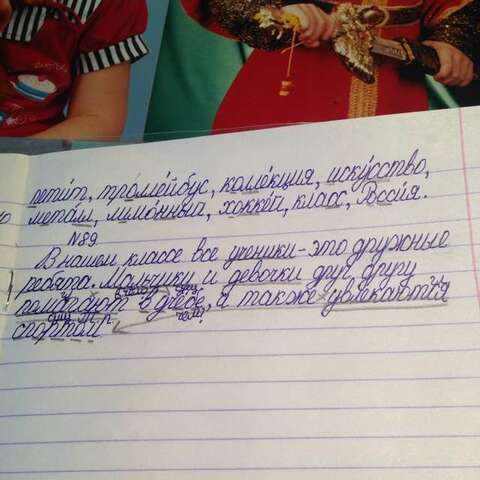 петит, троллейбус, коллекция, искусство,
металл, лимонный, хоккей, класс, Россия.
№89
В нашем классе все ученики - это дружные
ребята. Мальчики и девочки друг другу
помогают в учёбе, а также увлекаются
спортом.
чем?